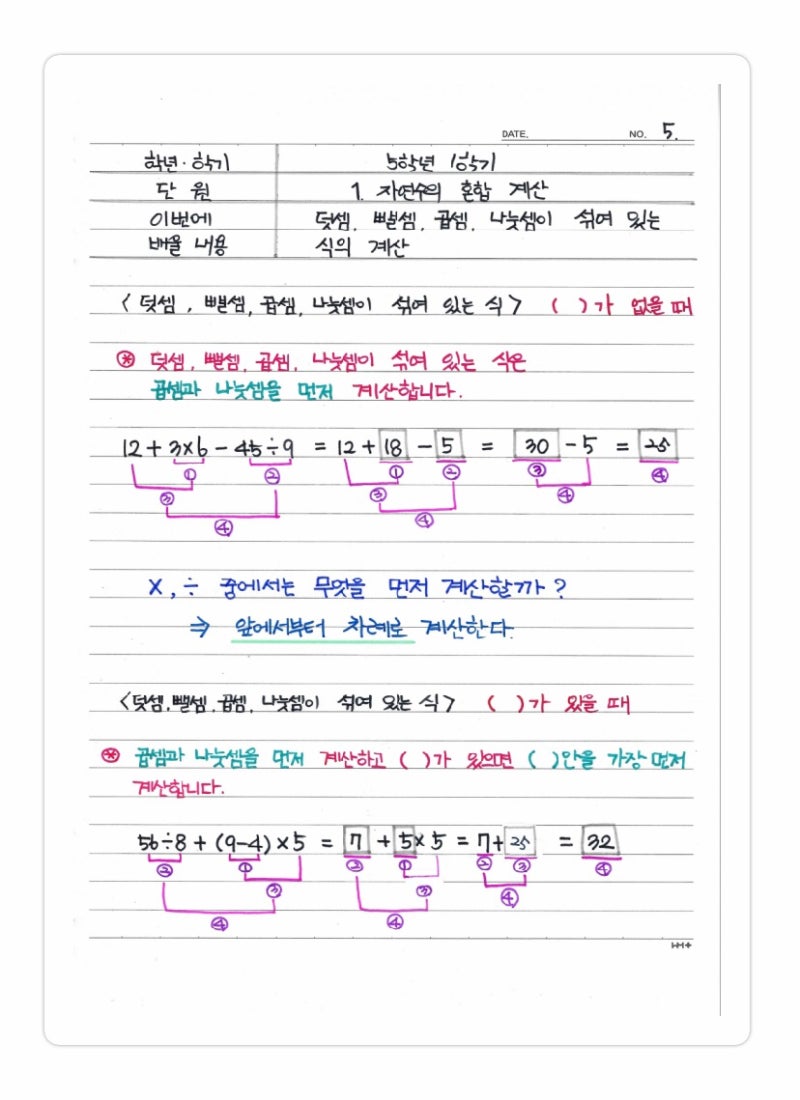 DATE. NO. 5.
학년·학기 5학년 1학기
단 원 1. 자연수의 혼합 계산
이번에 덧셈, 뺄셈, 곱셈, 나눗셈이 섞여 있는
배울 내용 식의 계산
〈덧셈, 뺄셈, 곱셈, 나눗셈이 섞여 있는 식〉 ( )가 없을 때
⊛ 덧셈, 뺄셈, 곱셈, 나눗셈이 섞여 있는 식은
곱셈과 나눗셈을 먼저 계산합니다.
12 + 3×6 - 45÷9 = 12 + 18 - 5 = 30 - 5 = 25
① ② ① ② ③ ④
③ ③ ④
④ ④
×, ÷ 중에서는 무엇을 먼저 계산할까?
⇒ 앞에서부터 차례로 계산한다.
〈덧셈, 뺄셈, 곱셈, 나눗셈이 섞여 있는 식〉 ( )가 있을 때
⊛ 곱셈과 나눗셈을 먼저 계산하고 ( )가 있으면 ( )안을 가장 먼저
계산합니다.
56÷8 + (9-4) × 5 = 7 + 5 × 5 = 7 + 25 = 32
② ① ② ① ② ③ ④
③ ③ ④
④ ④